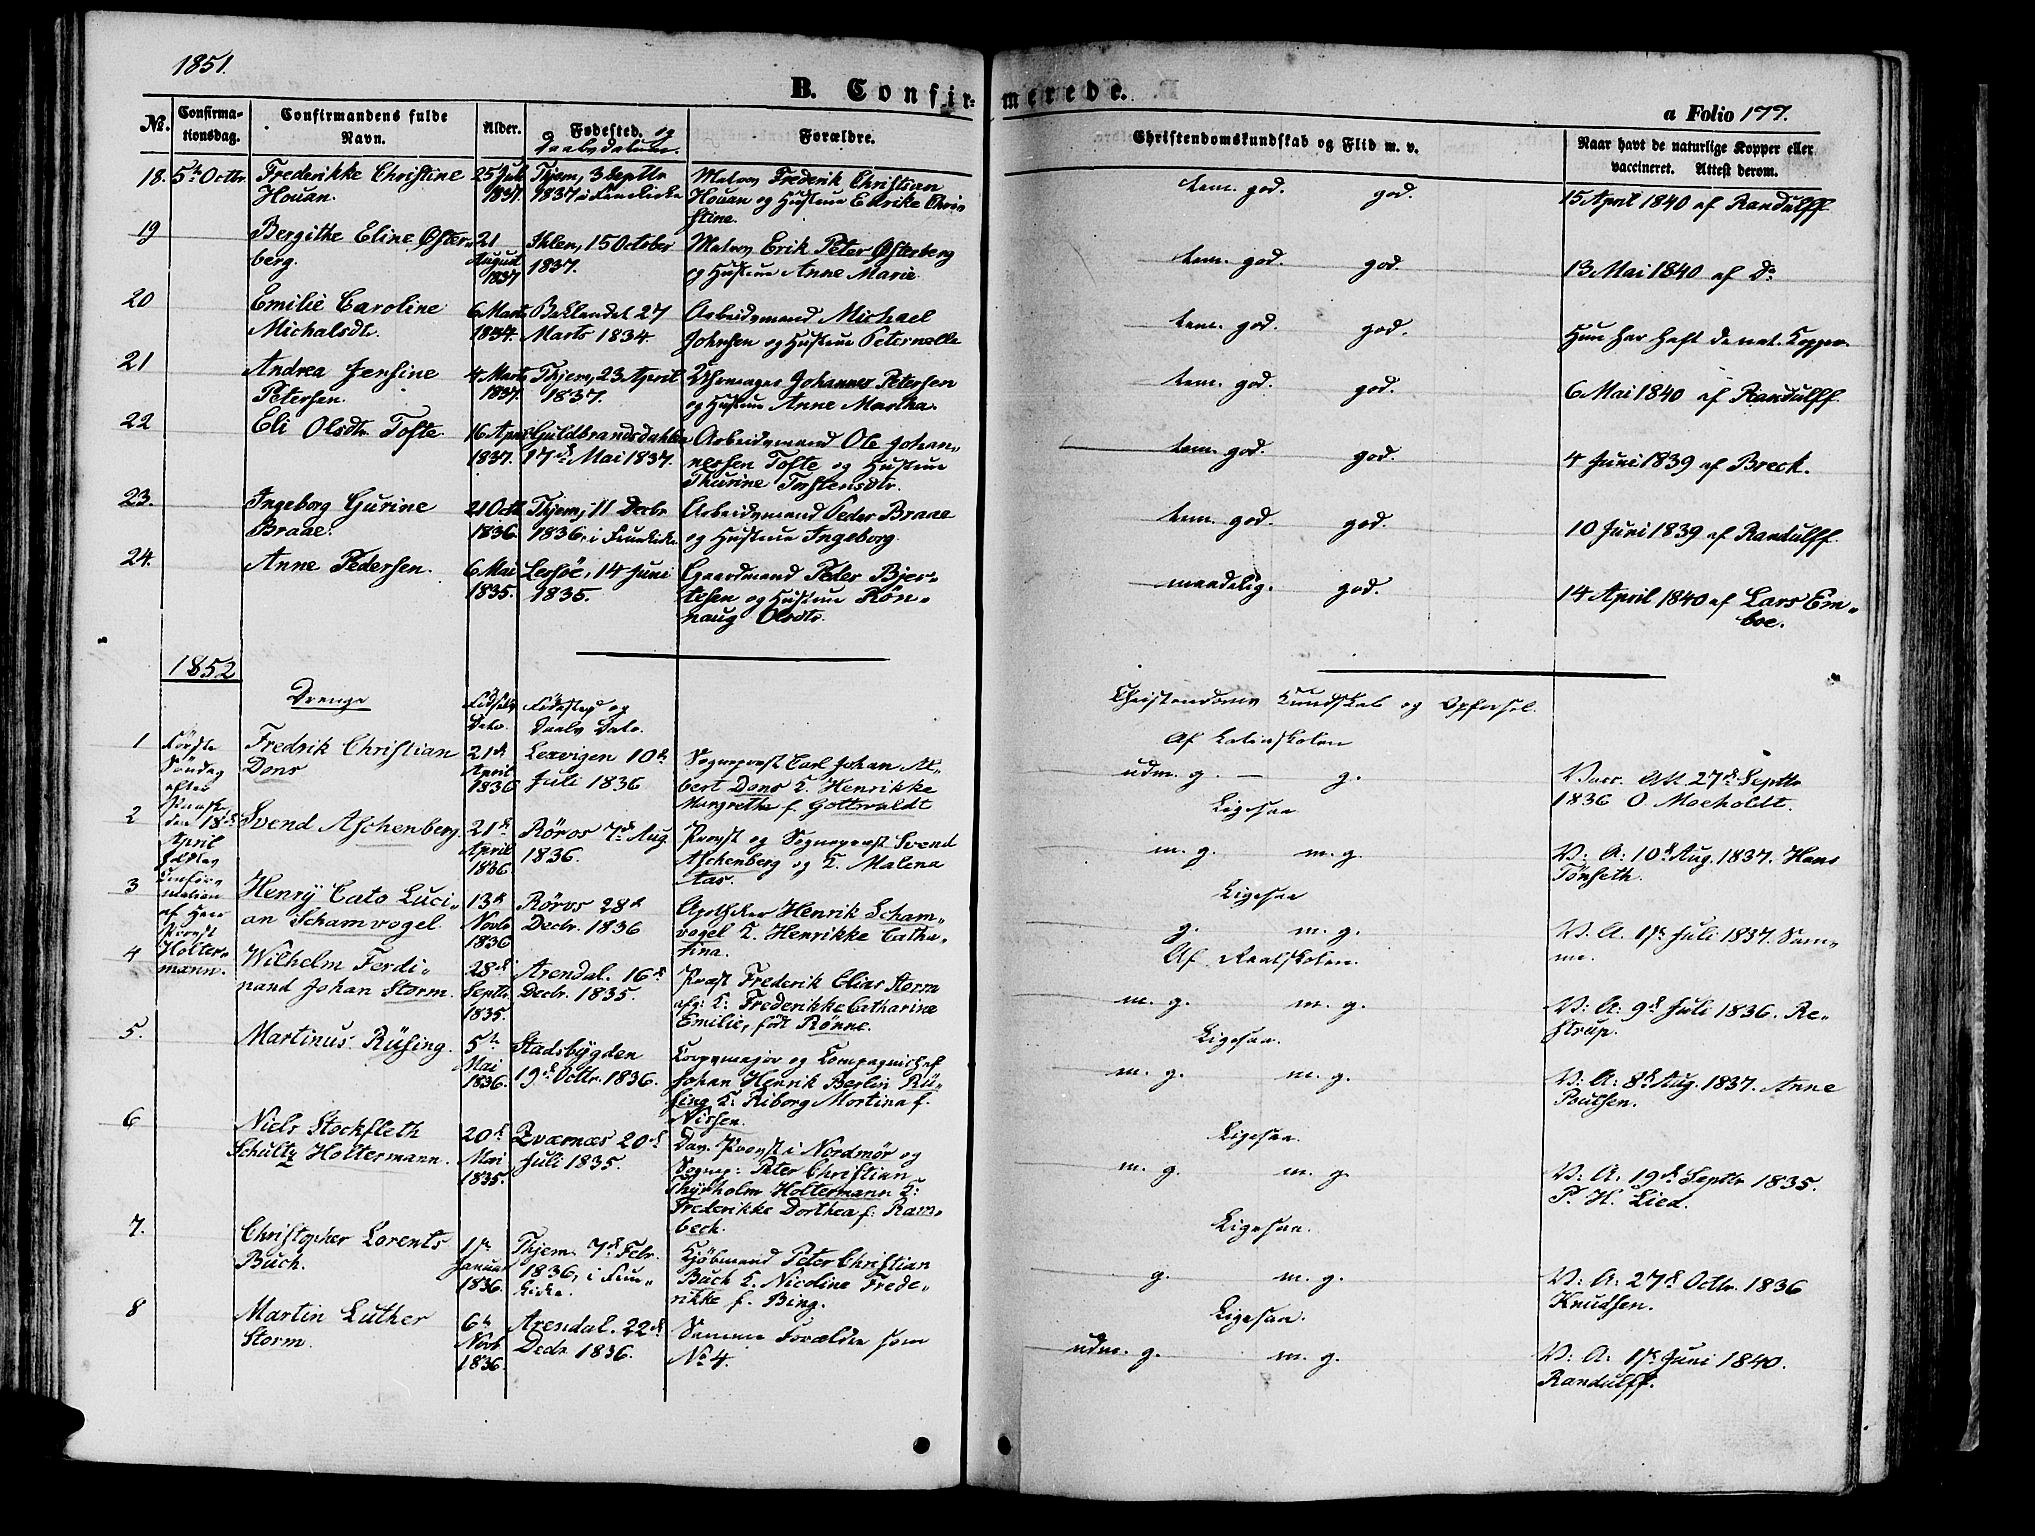 1851.
B. Confir-
merede.
a Folio 177.
No.
Confirma-
tionsdag.
Confirmandens fulde
Navn.
Alder.
Fødested. og
Daabsdatum.
Forældre.
Christendomskundskab og Flid m. v.
Naar havt de naturlige Kopper eller
vaccineret. Attest derom.
18. 5te Octbr Frederikke Christine
Houan.
25 Juli
1837.
Thjem, 3 Septbr
1837 i Fruekirke
Frederik Christian
Houan og Hustrue Chri-
stine.
tem. god. god.
15 April 1840 af Randulff
19
Bergithe Eline Øster-
berg.
21
August
1837
Ihlen, 15 October
1837.
Erik Peter Østerberg
og Hustrue Anne Marie
tem. god. god.
13 Mai 1840 af Do
20
Emilie Caroline
Michalsdt.
6 Marts
1834.
Baklandet 27
Marts 1834.
Arbeidsmand Michael
Johnsen og Hustrue Peternelle
tem. god. god.
Hun har haft de nat. Kopper.
21
Andrea Jensine
Petersen.
4 Marts
1837.
Thjem, 23 April
1837.
Johannes Petersen
og Hustrue Anne Martha.
tem. god. god.
6 Mai 1840 af Randulff.
22
Eli Olsdtr Tofte.
16 April
1837.
Guldbrandsdahlen
17de Mai 1837.
Arbeidsmand Ole Johan-
nessen Tofte og Hustrue
Thurine Torstensdtr.
tem. god. god.
4 Juni 1839 af Breck.
23.
Ingeborg Gurine
Braae.
21 Octb
1836
Thjem, 11 Decbr
1836, i Fruekirke
Arbeidsmand Peder Braae
og Hustrue Ingeborg.
tem. god. god.
10 Juni 1839 af Randulff
24.
Anne Pedersen.
6 Mai
1835.
Lessöe, 14 Juni
1835.
Gaardmand Peder Bjer-
tesen og Hustrue Rön-
naug Olsdtr.
maadelig. god.
14 April 1840 af Lars Em-
boe.
1852
Drenge
Födsels
Dato.
Födested og
Daabs Dato.
Christendoms Kundskab og Opførsel.
1
Første
Söndag
efter
Paaske
den 18de
April
holdtes
Confir-
mation
af Herr
Provst
Holter-
mann.
Fredrik Christian
Dons
21de
April
1836
Lexvigen 10de
Juli 1836
Sogneprest Carl Johan Al-
bert Dons & Henrikke
Margrethe f. Gottwaldt
Af Latinskolen
udm. g. — g.
Vacc. Att. 27de Septbr
1836 O Moeholdt.
2
Svend Aschenberg.
21de
April
1836
Röros 7de Aug.
1836.
Provst og Sogneprest Svend
Aschenberg og &. Malena
Aas.
Ligesaa
m. g. m. g.
V: A: 10de Aug. 1837. Hans
Tönseth.
3
Henry Cato Luci-
an Schamvogel.
13de
Novbr
1836
Röros 28de
Decbr. 1836
Apotheker Henrik Scham-
vogel &. Henrikke Catha-
rina.
Ligesaa
g. m. g.
V. A. 17de Juli 1837. Sam-
me.
4
Wilhelm Ferdi-
nand Johan Storm.
28de
Septbr.
1835.
Arendal. 16de
Decbr. 1835.
Provst Frederik Elias Storm
&: Frederikke Catharine
Emilie, født Rönne.
Af Realskolen.
m. g. m. g.
V: A: 9de Juli 1836. Re-
strup.
5.
Martinus Rüsing.
5te
Mai
1836.
Stadsbygden
19de Octbr. 1836.
Corpsmajor og Compagnichef
Johan Henrik Berlin Rü-
sing &: Riborg Mortina f.
Nissen.
Ligesaa.
m. g. m. g.
V: A: 8de Aug. 1837. Anne
Poulsen.
6
Niels Stockfleth
Schultz Holtermann.
20de
Mai
1835.
Qværnæs 20de
Juli 1835.
Provst i Nordmør og
Sognep: Peter Christian
Thyrholm Holtermann &:
Frederikke Dorthea f: Ram-
bech.
Ligesaa.
m. g. m. g.
V: A: 19de Septbr 1835.
P. H. Lied.
7.
Christopher Lorents
Buch.
1te
Januar
1836.
Thjem. 7de Febr.
1836, i Frue-
kirke.
Kjöbmand Peter Christian
Buch &. Nicoline Frede-
rikke f. Bing.
Ligesaa.
g. m. g.
V: A: 27de Octbr. 1836
Knudsen.
8
Martin Luther
Storm.
6te
Novb
1836.
Arendal. 22de
Decbr 1836.
Samme Forældre som
No 4.
Ligesaa.
udm. g. m. g.
V: A: 17de Juni 1840.
Randulff.